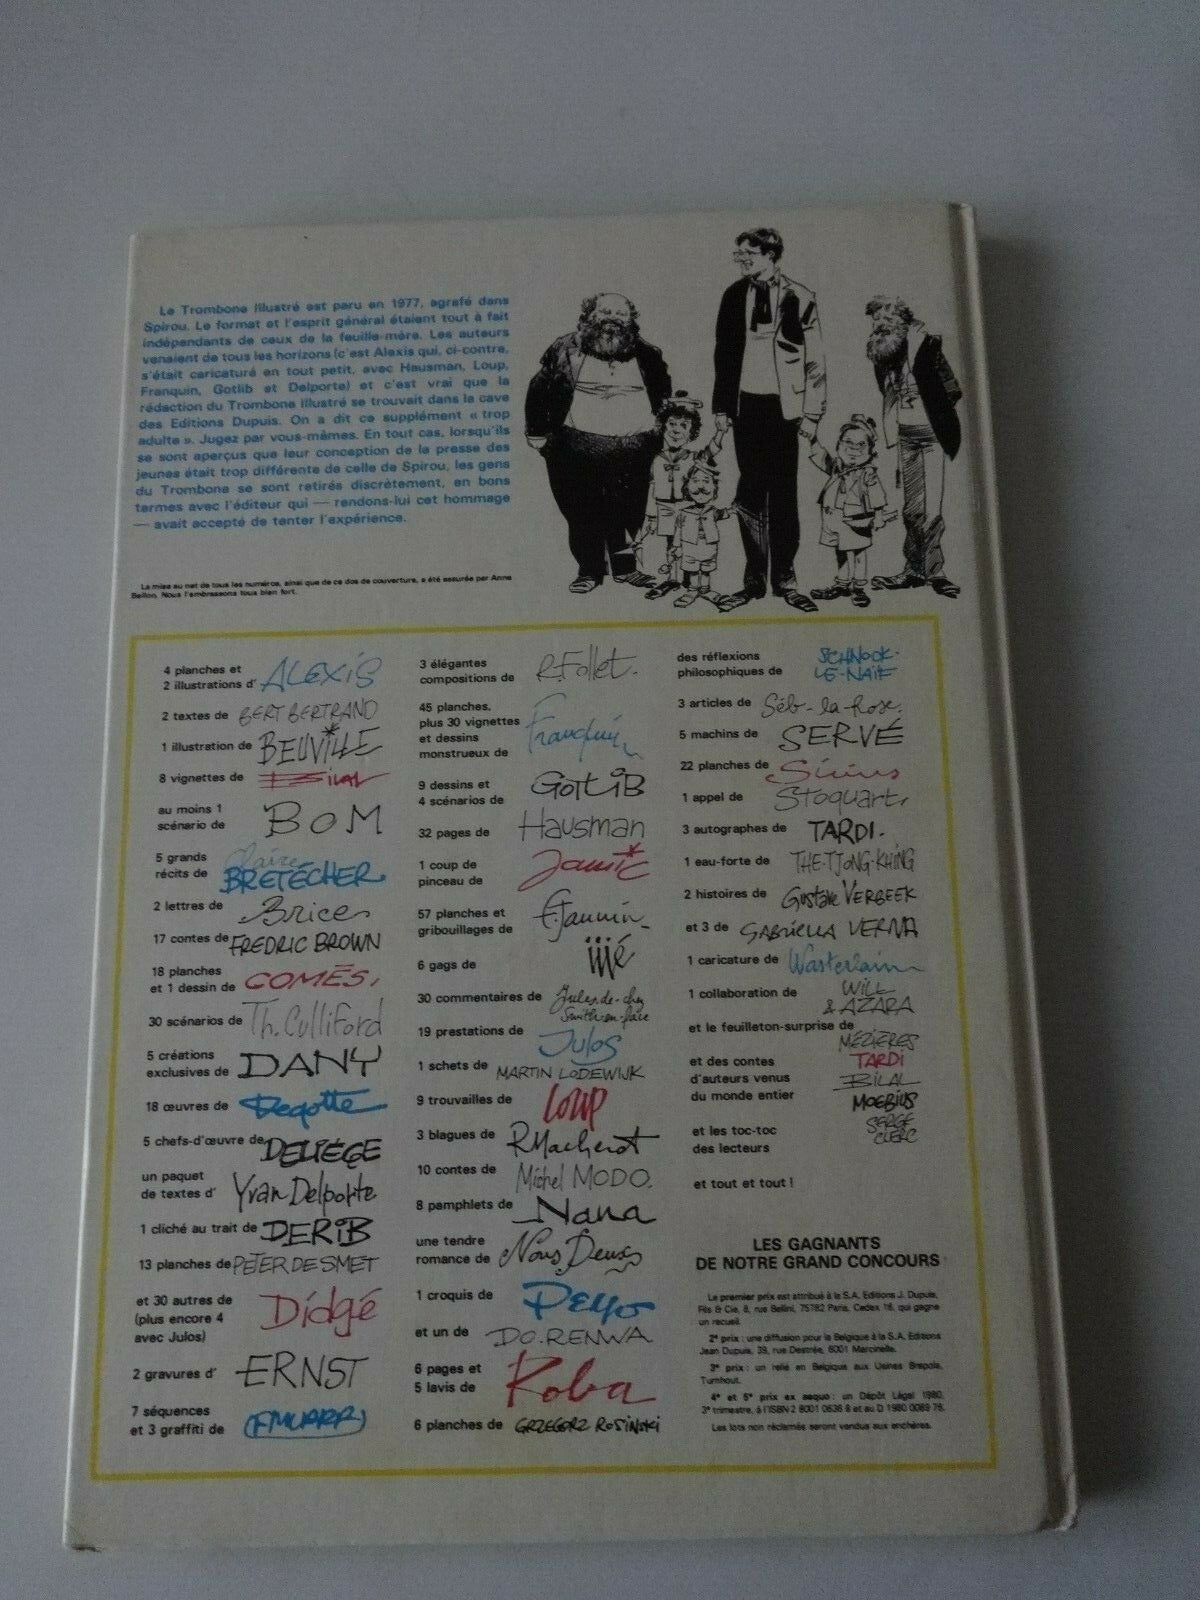 Le Trombone Illustré est paru en 1977, agrafé dans
Spirou. Le format et l'esprit général étaient tout à fait
indépendants de ceux de la feuille-mère. Les auteurs
venaient de tous les horizons (c'est Alexis qui, ci-contre,
s'était caricaturé en tout petit, avec Hausman, Loup,
Franquin, Gotlib et Delporte) et c'est vrai que la
rédaction du Trombone Illustré se trouvait dans la cave
des Editions Dupuis. On a dit ce supplément « trop
adulte ». Jugez par vous-mêmes. En tout cas, lorsqu'ils
se sont aperçus que leur conception de la presse des
jeunes était trop différente de celle de Spirou, les gens
du Trombone se sont retirés discrètement, en bons
termes avec l'éditeur qui — rendons-lui cet hommage
— avait accepté de tenter l'expérience.
La mise au net de tous les numéros, ainsi que de ce dos de couverture, a été assurée par Anne
Bellon. Nous l'embrassons tous bien fort.
4 planches et
2 illustrations d' ALEXIS
2 textes de BERT BERTRAND
1 illustration de BEUVILLE
8 vignettes de BILAL
au moins 1
scénario de BOM
5 grands
récits de Claire BRETÉCHER
2 lettres de Brice
17 contes de FREDRIC BROWN
18 planches
et 1 dessin de COMÈS,
30 scénarios de Th. Culliford
5 créations
exclusives de DANY
18 œuvres de Degotte
5 chefs-d'œuvre de DELIÈGE
un paquet
de textes d' Yvan Delporte
1 cliché au trait de DERIB
13 planches de PETER DE SMET
et 30 autres de
(plus encore 4
avec Julos) Didgé
2 gravures d' ERNST
7 séquences
et 3 graffiti de (FMURRR)
3 élégantes
compositions de R. Follet.
45 planches,
plus 30 vignettes
et dessins
monstrueux de Franquin
9 dessins et
4 scénarios de GOTLIB
32 pages de Hausman
1 coup de
pinceau de Jamic
57 planches et
gribouillages de F. Jannin
6 gags de jijé
30 commentaires de Jules-de-chez
Smith-en-face
19 prestations de Julos
1 schets de MARTIN LODEWIJK
9 trouvailles de LOUP
3 blagues de R. Macherot
10 contes de Michel MODO.
8 pamphlets de Nana
une tendre
romance de Nous Deux
1 croquis de Peyo
et un de DO.RENWA
6 pages et
5 lavis de Roba
6 planches de GRZEGORZ ROSINSKI
des réflexions
philosophiques de SCHNOCK-
LE-NAIF
3 articles de Séb-la-Rose.
5 machins de SERVÉ
22 planches de Sirius
1 appel de Stoquart.
3 autographes de TARDI.
1 eau-forte de THE-TJONG-KHING
2 histoires de Gustave VERBEEK
et 3 de GABRIELLA VERNA
1 caricature de Wasterlain
1 collaboration de WILL
& AZARA
et le feuilleton-surprise de
MÉZIÈRES
et des contes TARDI
d'auteurs venus BILAL
du monde entier MOEBIUS
SERGE
CLERC
et les toc-toc
des lecteurs
et tout et tout !
LES GAGNANTS
DE NOTRE GRAND CONCOURS
Le premier prix est attribué à la S.A. Editions J. Dupuis,
Fils & Cie, 8, rue Bellini, 75782 Paris, Cedex 16, qui gagne
un recueil.
2e prix : une diffusion pour la Belgique à la S.A. Editions
Jean Dupuis, 39, rue Destrée, 6001 Marcinelle.
3e prix : un relié en Belgique aux Usines Brepols,
Turnhout.
4e et 5e prix ex aequo : un Dépôt Légal 1980,
3e trimestre, à l'ISBN 2 8001 0636 8 et au D 1980 0089 76.
Les lots non réclamés seront vendus aux enchères.